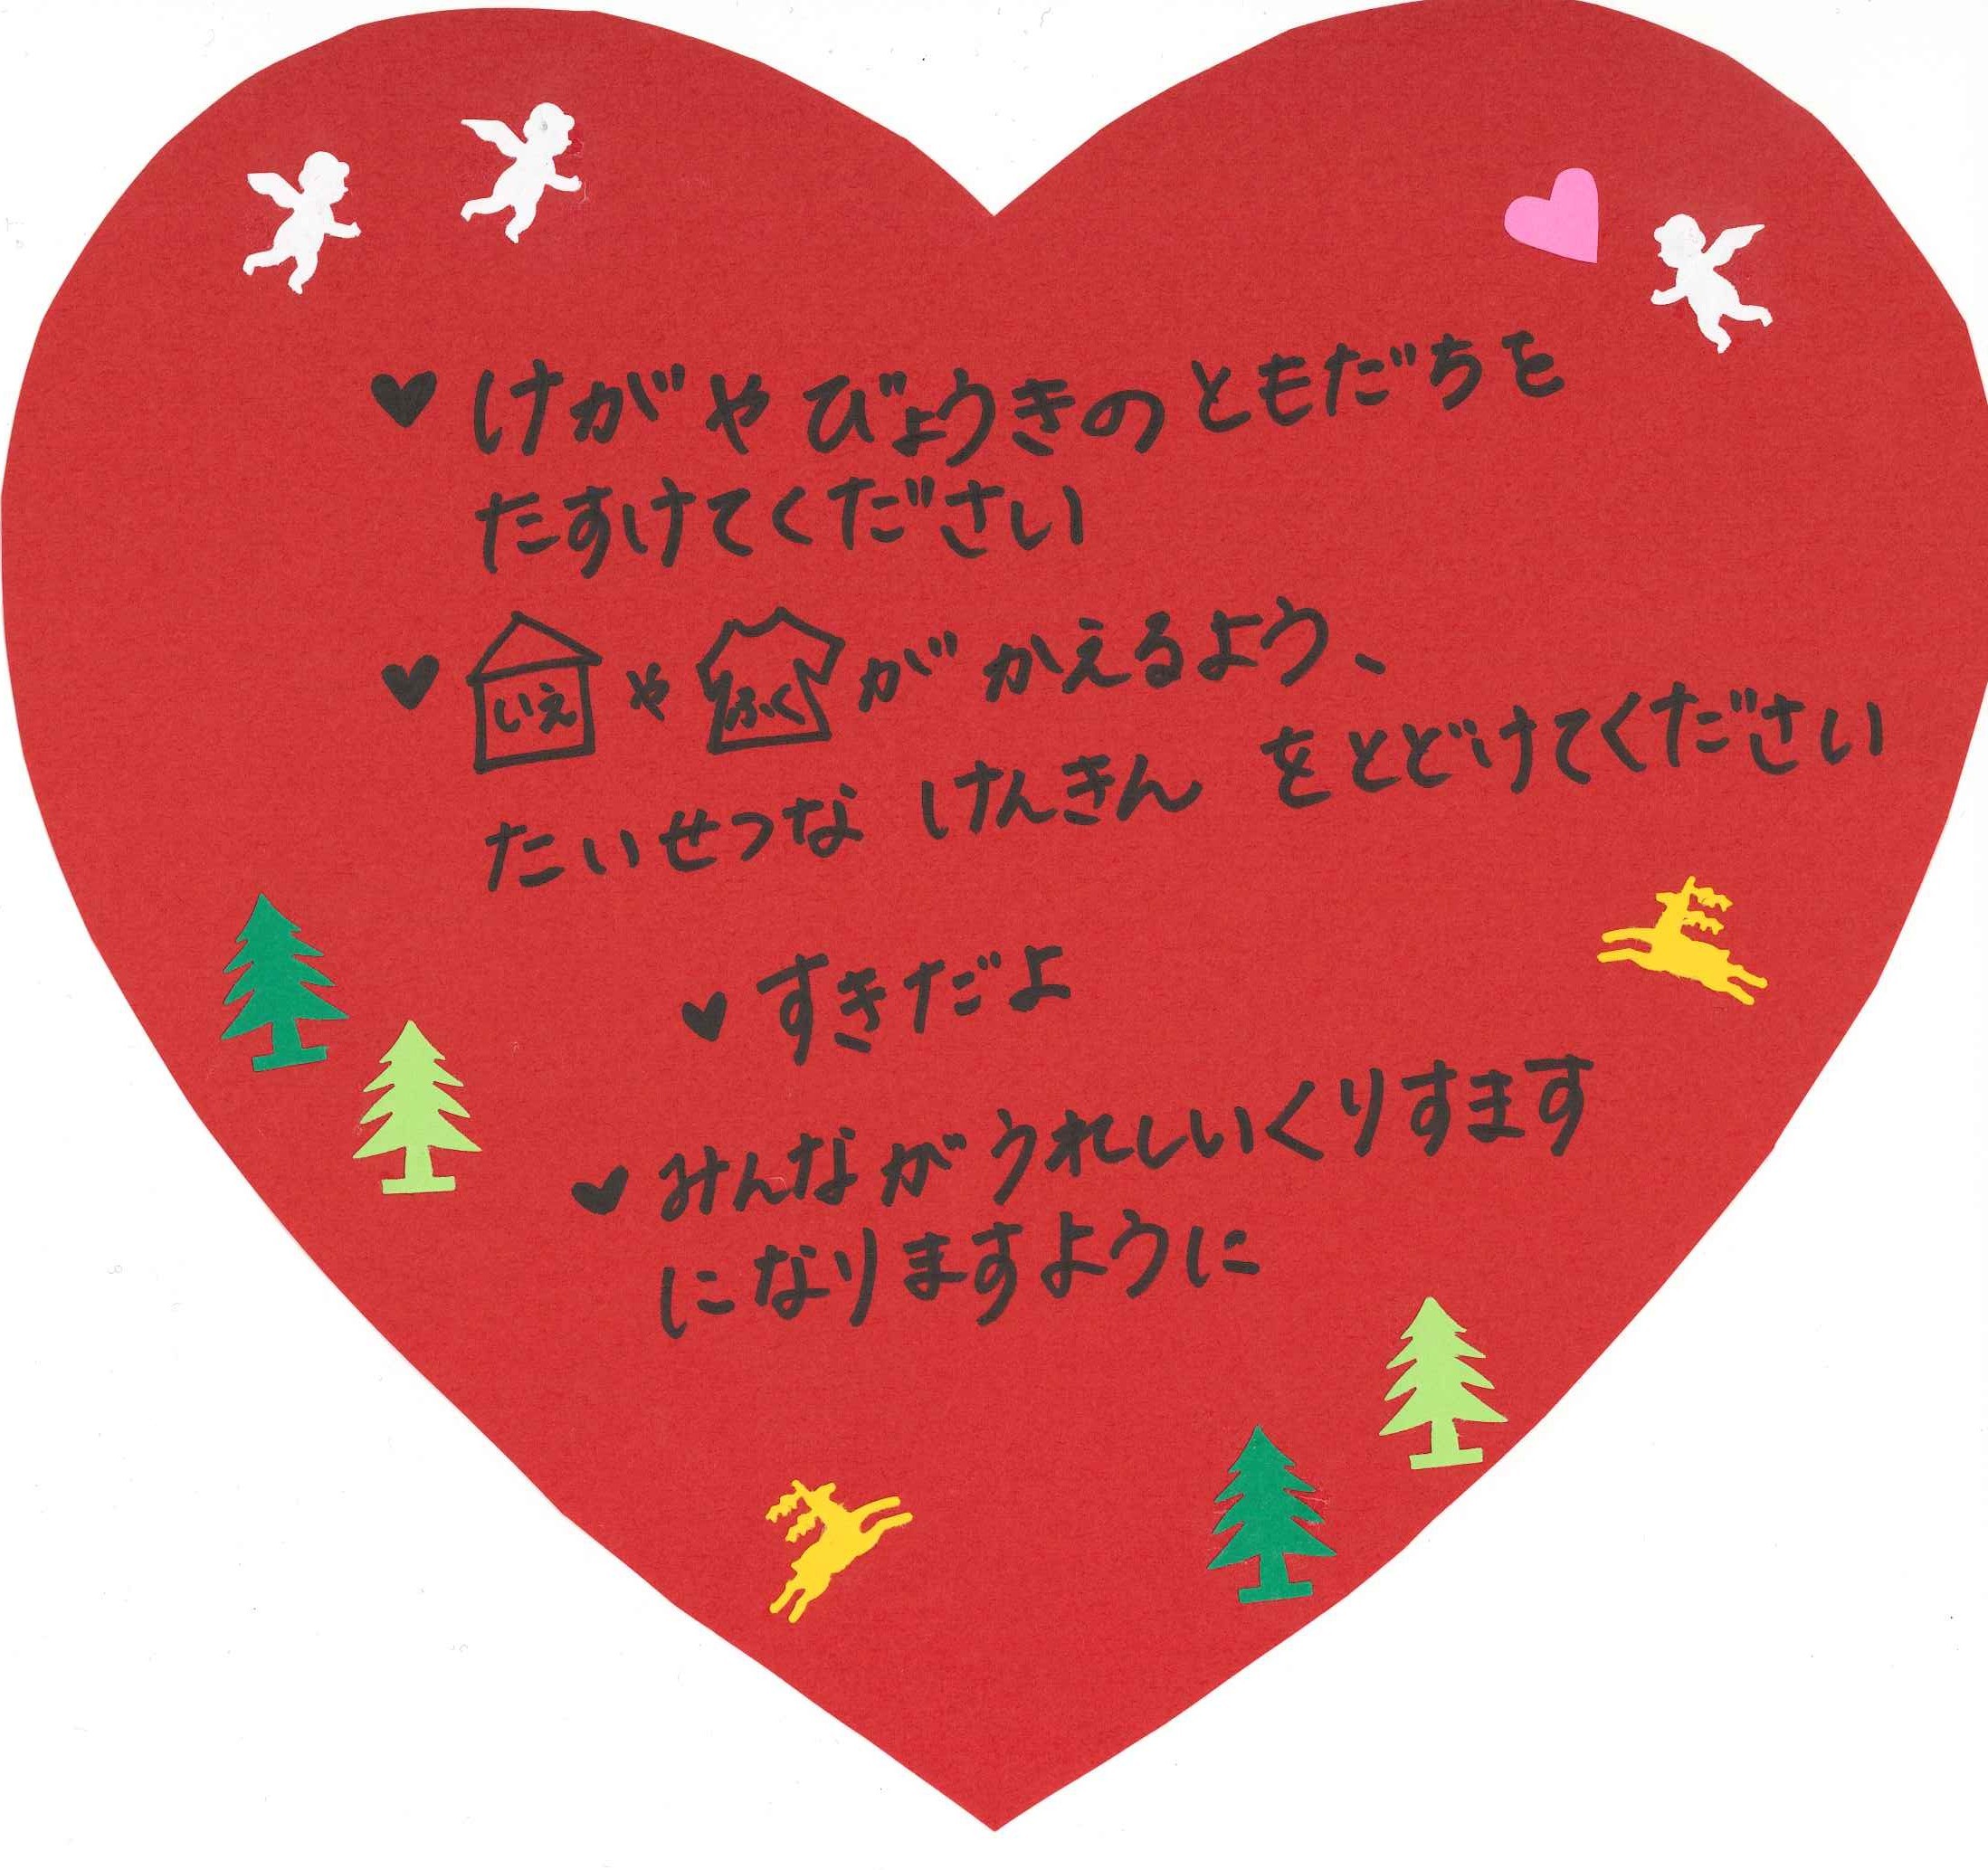 ♥けがやびょうきのともだちを
たすけてください
♥いえやふくがかえるよう、
たいせつな けんきん をとどけてください
♥すきだよ
♥みんながうれしいくりすます
になりますように